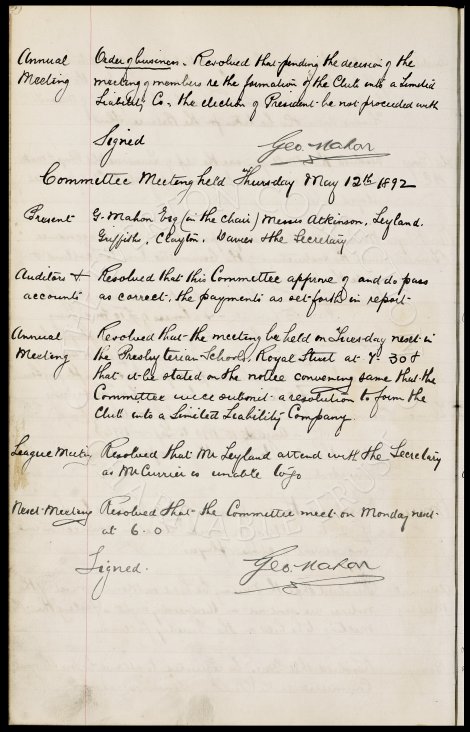 Annual Order of business. Resolved that pending the decision of the
Meeting meeting of members re the formation of the Club into a Limited
Liability Co, the election of President be not proceeded with
Signed Geo. Mahon
Committee Meeting held Thursday May 12th 1892
Present G. Mahon Esq (in the Chair) Messrs Atkinson, Leyland.
Griffiths, Clayton, Davies & the Secretary
Auditors & Resolved that this Committee approve of and do pass
accounts as correct, the payments as set forth in report
Annual Resolved that the meeting be held on Tuesday next in
Meeting the Presbyterian Schools, Royal Street at 7.30 &
that it be stated on the notice convening same that the
Committee will submit a resolution to form the
Club into a Limited Liability Company.
League Meeting Resolved that Mr Leyland attend with the Secretary
as Mr Currier is unable to go
Next Meeting Resolved that the Committee meet on Monday next
at 6.0
Signed. Geo. Mahon